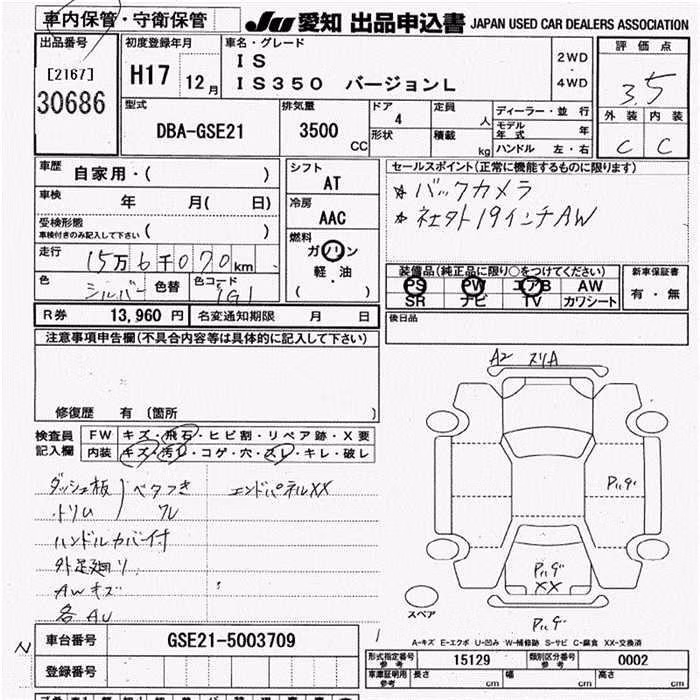 車内保管・守衛保管
JU 愛知 出品申込書 JAPAN USED CAR DEALERS ASSOCIATION
出品番号
[2167]
30686
初度登録年月
H17 12月
車名・グレード
IS
IS350 バージョンL
2WD
・
4WD
評価点
3.5
外装 内装
C C
型式
DBA-GSE21
排気量
3500
CC
ドア
4
形状
定員
人
積載
kg
ディーラー・並行
モデル年式 年
ハンドル 左・右
車歴
自家用・( )
車検
年 月( 日)
受検形態
車検付きのみ記入して下さい ( )
走行
15万6千070km
色
シルバー
色替
色コード
1G1
シフト
AT
冷房
AAC
燃料
ガソリン
軽・油
( )
セールスポイント(正常に機能するものに限ります)
☆バックカメラ
☆社外19インチAW
装備品(純正品に限り○をつけてください)
PS PW エアB AW
SR ナビ TV カワシート
新車保証書
有・無
後日品
R券 13,960円 名変通知期限 月 日
注意事項申告欄(不具合内容等は具体的に記入して下さい)
修復歴 有 〔箇所 〕
検査員
記入欄
FW キズ・飛石・ヒビ割・リペア跡・X要
内装 キズ・汚レ・コゲ・穴・スレ・キレ・破レ
ダッシュ板
トリム
ベタつき
ワレ
エンドパネルXX
ハンドルカバー付
外足廻リ
AWキズ
各AU
A2 スリA
Pハゲ
Pハゲ
XX
Pハゲ
スペア
A-キズ E-エクボ U-凹み W-補修跡 S-サビ C-腐食 XX-交換済
N
車台番号 GSE21-5003709
登録番号
形式指定番号
参考
15129
類別区分番号
参考
0002
車庫証明用
参考
長さ cm 幅 cm 高さ cm